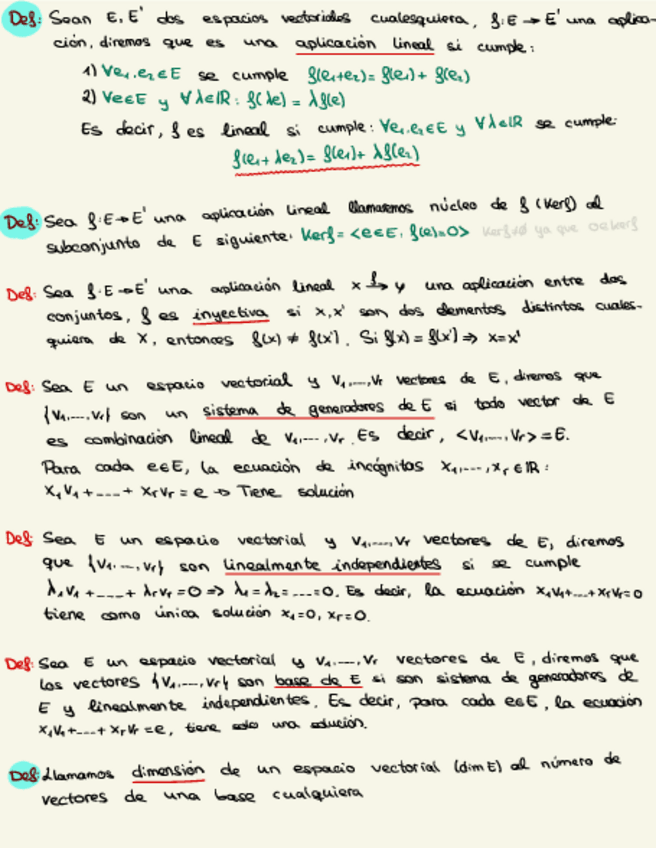 Def: Sean E, E' dos espacios vectoriales cualesquiera, f: E → E' una aplica-
ción, diremos que es una aplicación lineal si cumple:
1) ∀e₁,e₂∈E se cumple f(e₁+e₂)= f(e₁)+ f(e₂)
2) ∀e∈E y ∀λ∈IR: f(λe) = λf(e)
Es decir, f es lineal si cumple: ∀e₁,e₂∈E y ∀λ∈IR se cumple:
f(e₁+ λe₂)= f(e₁)+ λf(e₂)
Def: Sea f: E→E' una aplicación lineal llamaremos núcleo de f (Kerf) al
subconjunto de E siguiente: Kerf = <e∈E, f(e)=0> Kerf≠∅ ya que 0∈Kerf
Def: Sea f: E→E' una aplicación lineal x →f y una aplicación entre dos
conjuntos, f es inyectiva si x,x' son dos elementos distintos cuales-
quiera de X, entonces f(x) ≠ f(x'). Si f(x) = f(x') ⇒ x=x'
Def: Sea E un espacio vectorial y v₁,...,vr vectores de E, diremos que
{v₁,...,vr} son un sistema de generadores de E si todo vector de E
es combinación lineal de v₁,...,vr. Es decir, <v₁,...,vr> = E.
Para cada e∈E, la ecuación de incógnitas x₁,...,xr ∈ IR:
x₁v₁+...+ xrvr = e → Tiene solución
Def: Sea E un espacio vectorial y v₁,...,vr vectores de E, diremos
que {v₁,...,vr} son linealmente independientes si se cumple
λ₁v₁+...+ λrvr = 0 => λ₁ = λ₂ = ... = 0. Es decir, la ecuación x₁v₁+...+xrvr=0
tiene como única solución x₁=0, xr=0.
Def: Sea E un espacio vectorial y v₁,...,vr vectores de E, diremos que
los vectores {v₁,...,vr} son base de E si son sistema de generadores de
E y linealmente independientes. Es decir, para cada e∈E, la ecuación
x₁v₁+...+ xrvr = e, tiene solo una solución.
Def: Llamamos dimensión de un espacio vectorial (dim E) al número de
vectores de una base cualquiera